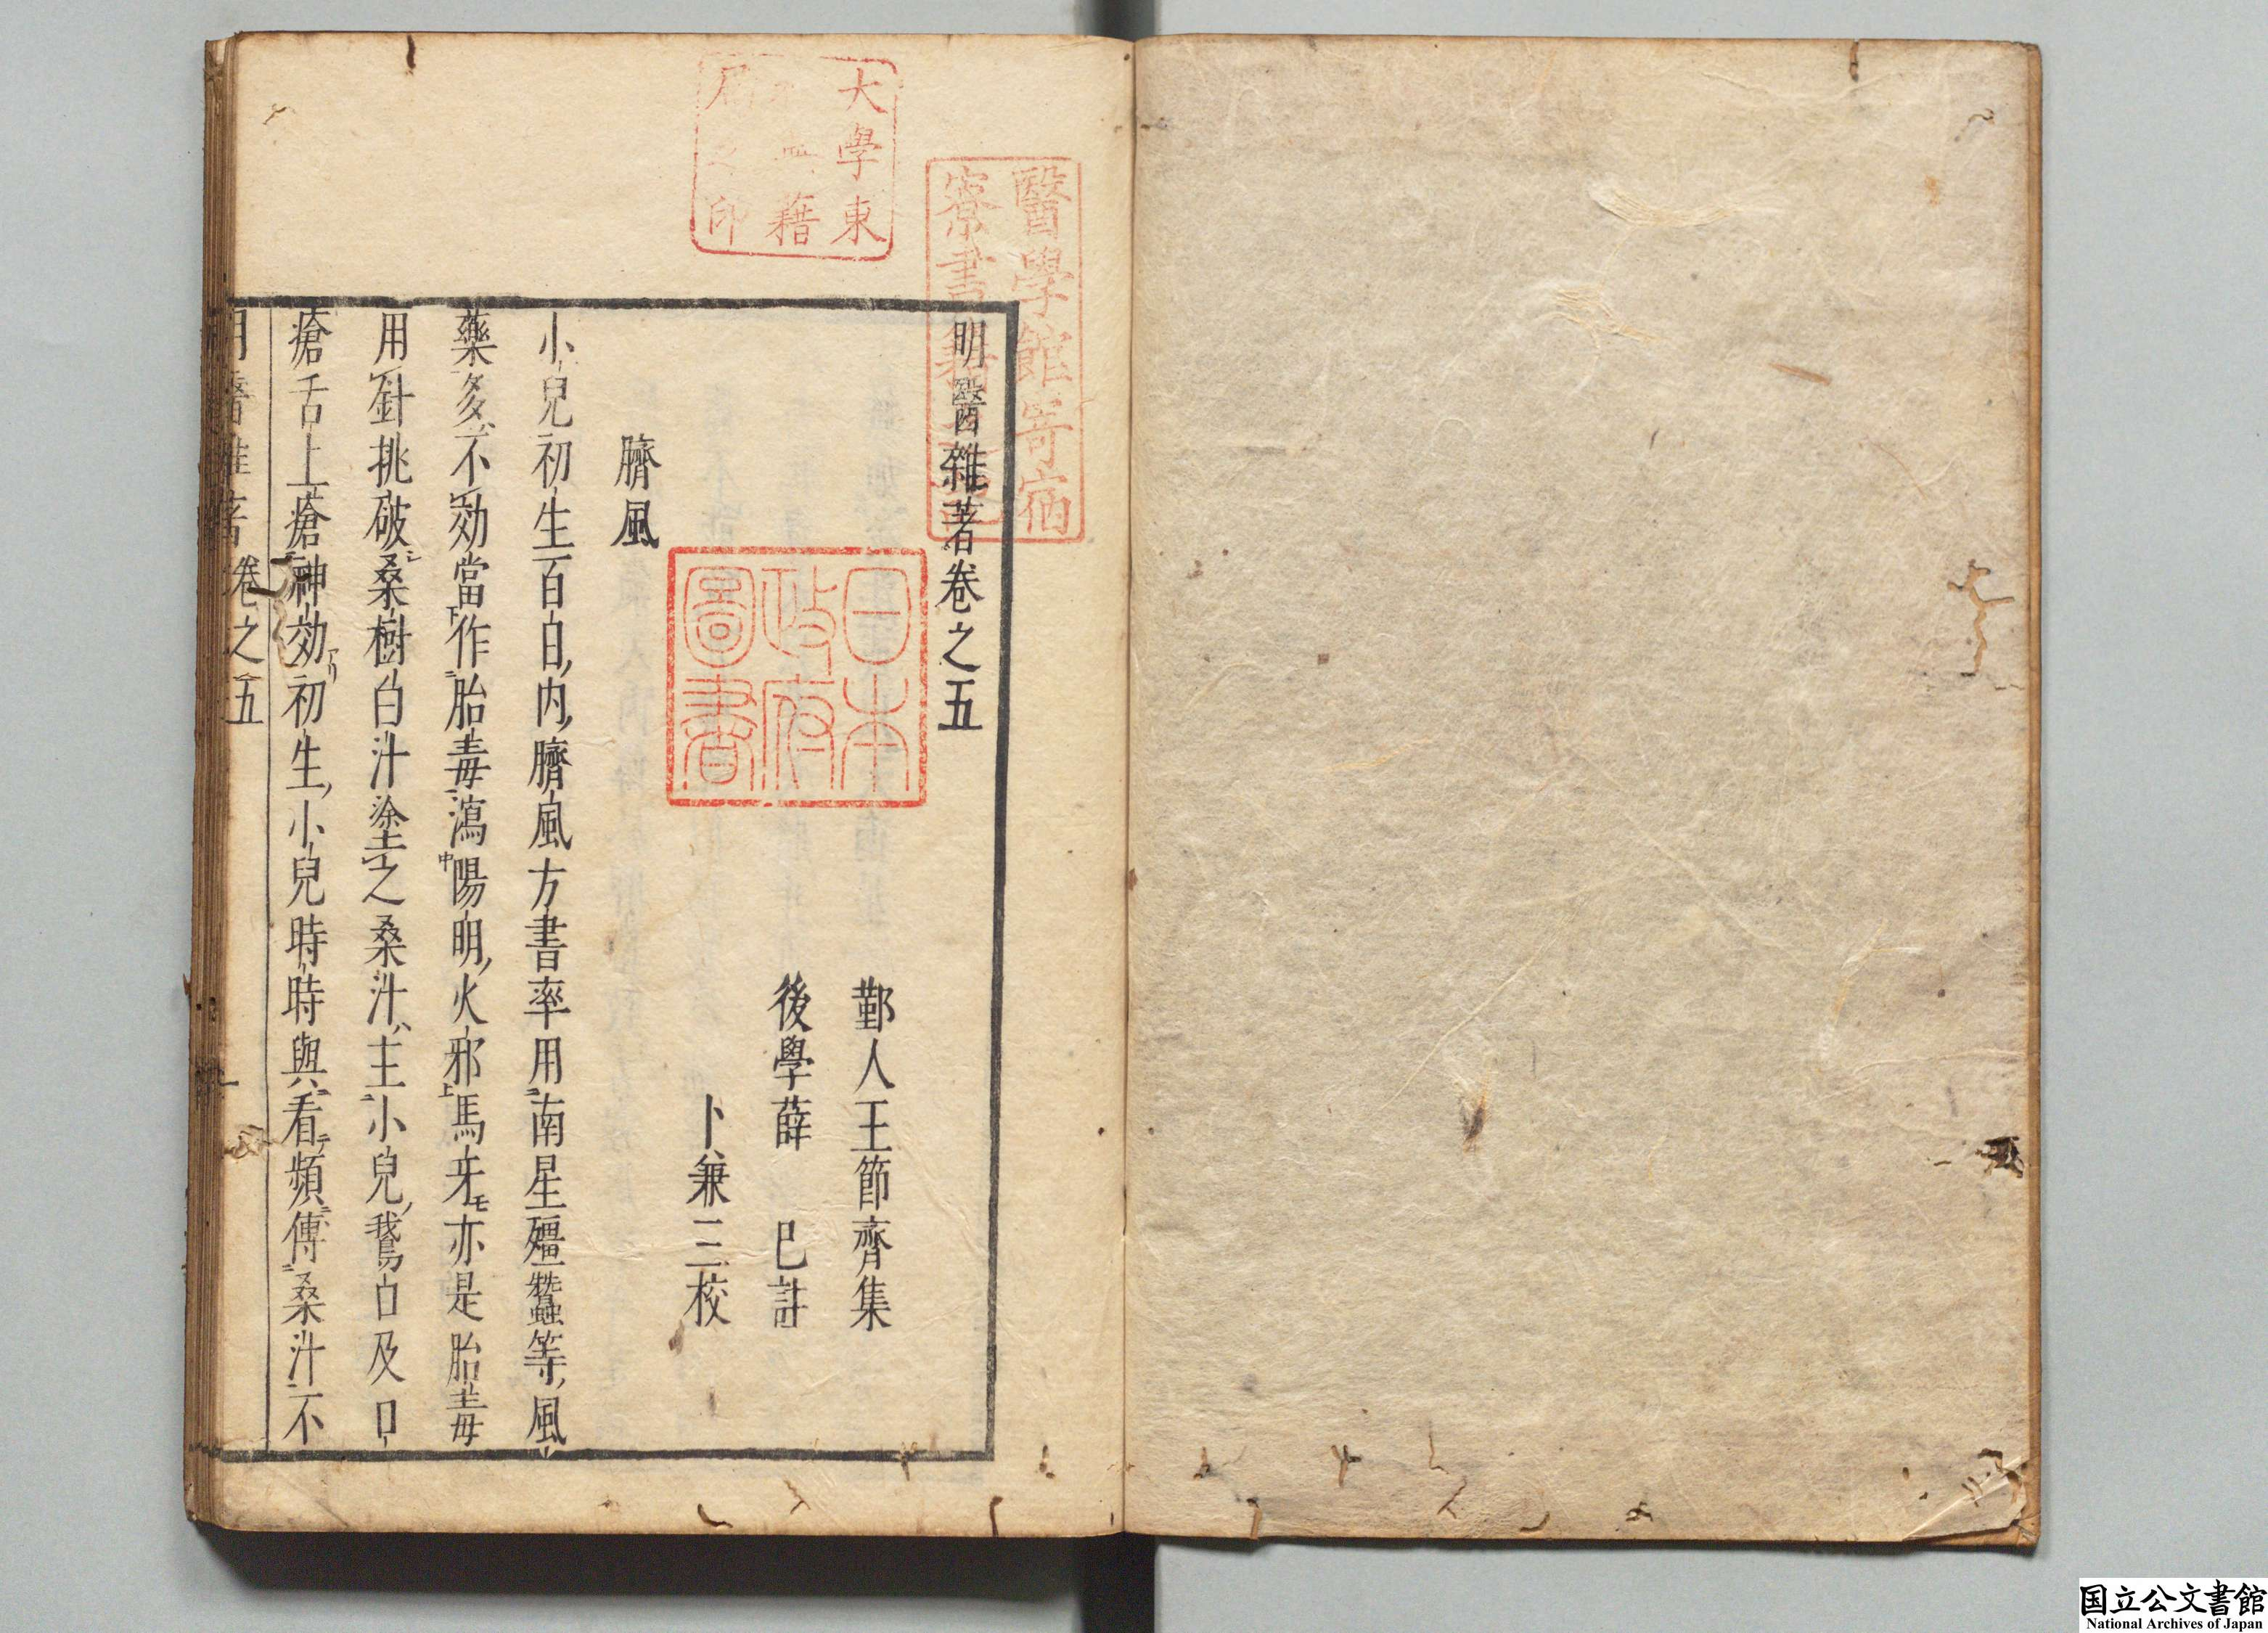 明醫雜著卷之五
鄞人王節齊集
後學薛 已註
卜兼三校
臍風
小兒初生百日内臍風方書率用南星殭蠶等風
藥多不効當作胎毒瀉陽明火邪馬牙亦是胎毒
用針挑破桑樹白汁塗之桑汁主小兒鵞口及口
瘡舌上瘡神効初生小兒時時與看頻傅桑汁不
明醫雜著 卷之五
醫學館寄宿
寮書籍之記
大學東
籍
局之印
日本
政府
圖書
国立公文書館
National Archives of Japan